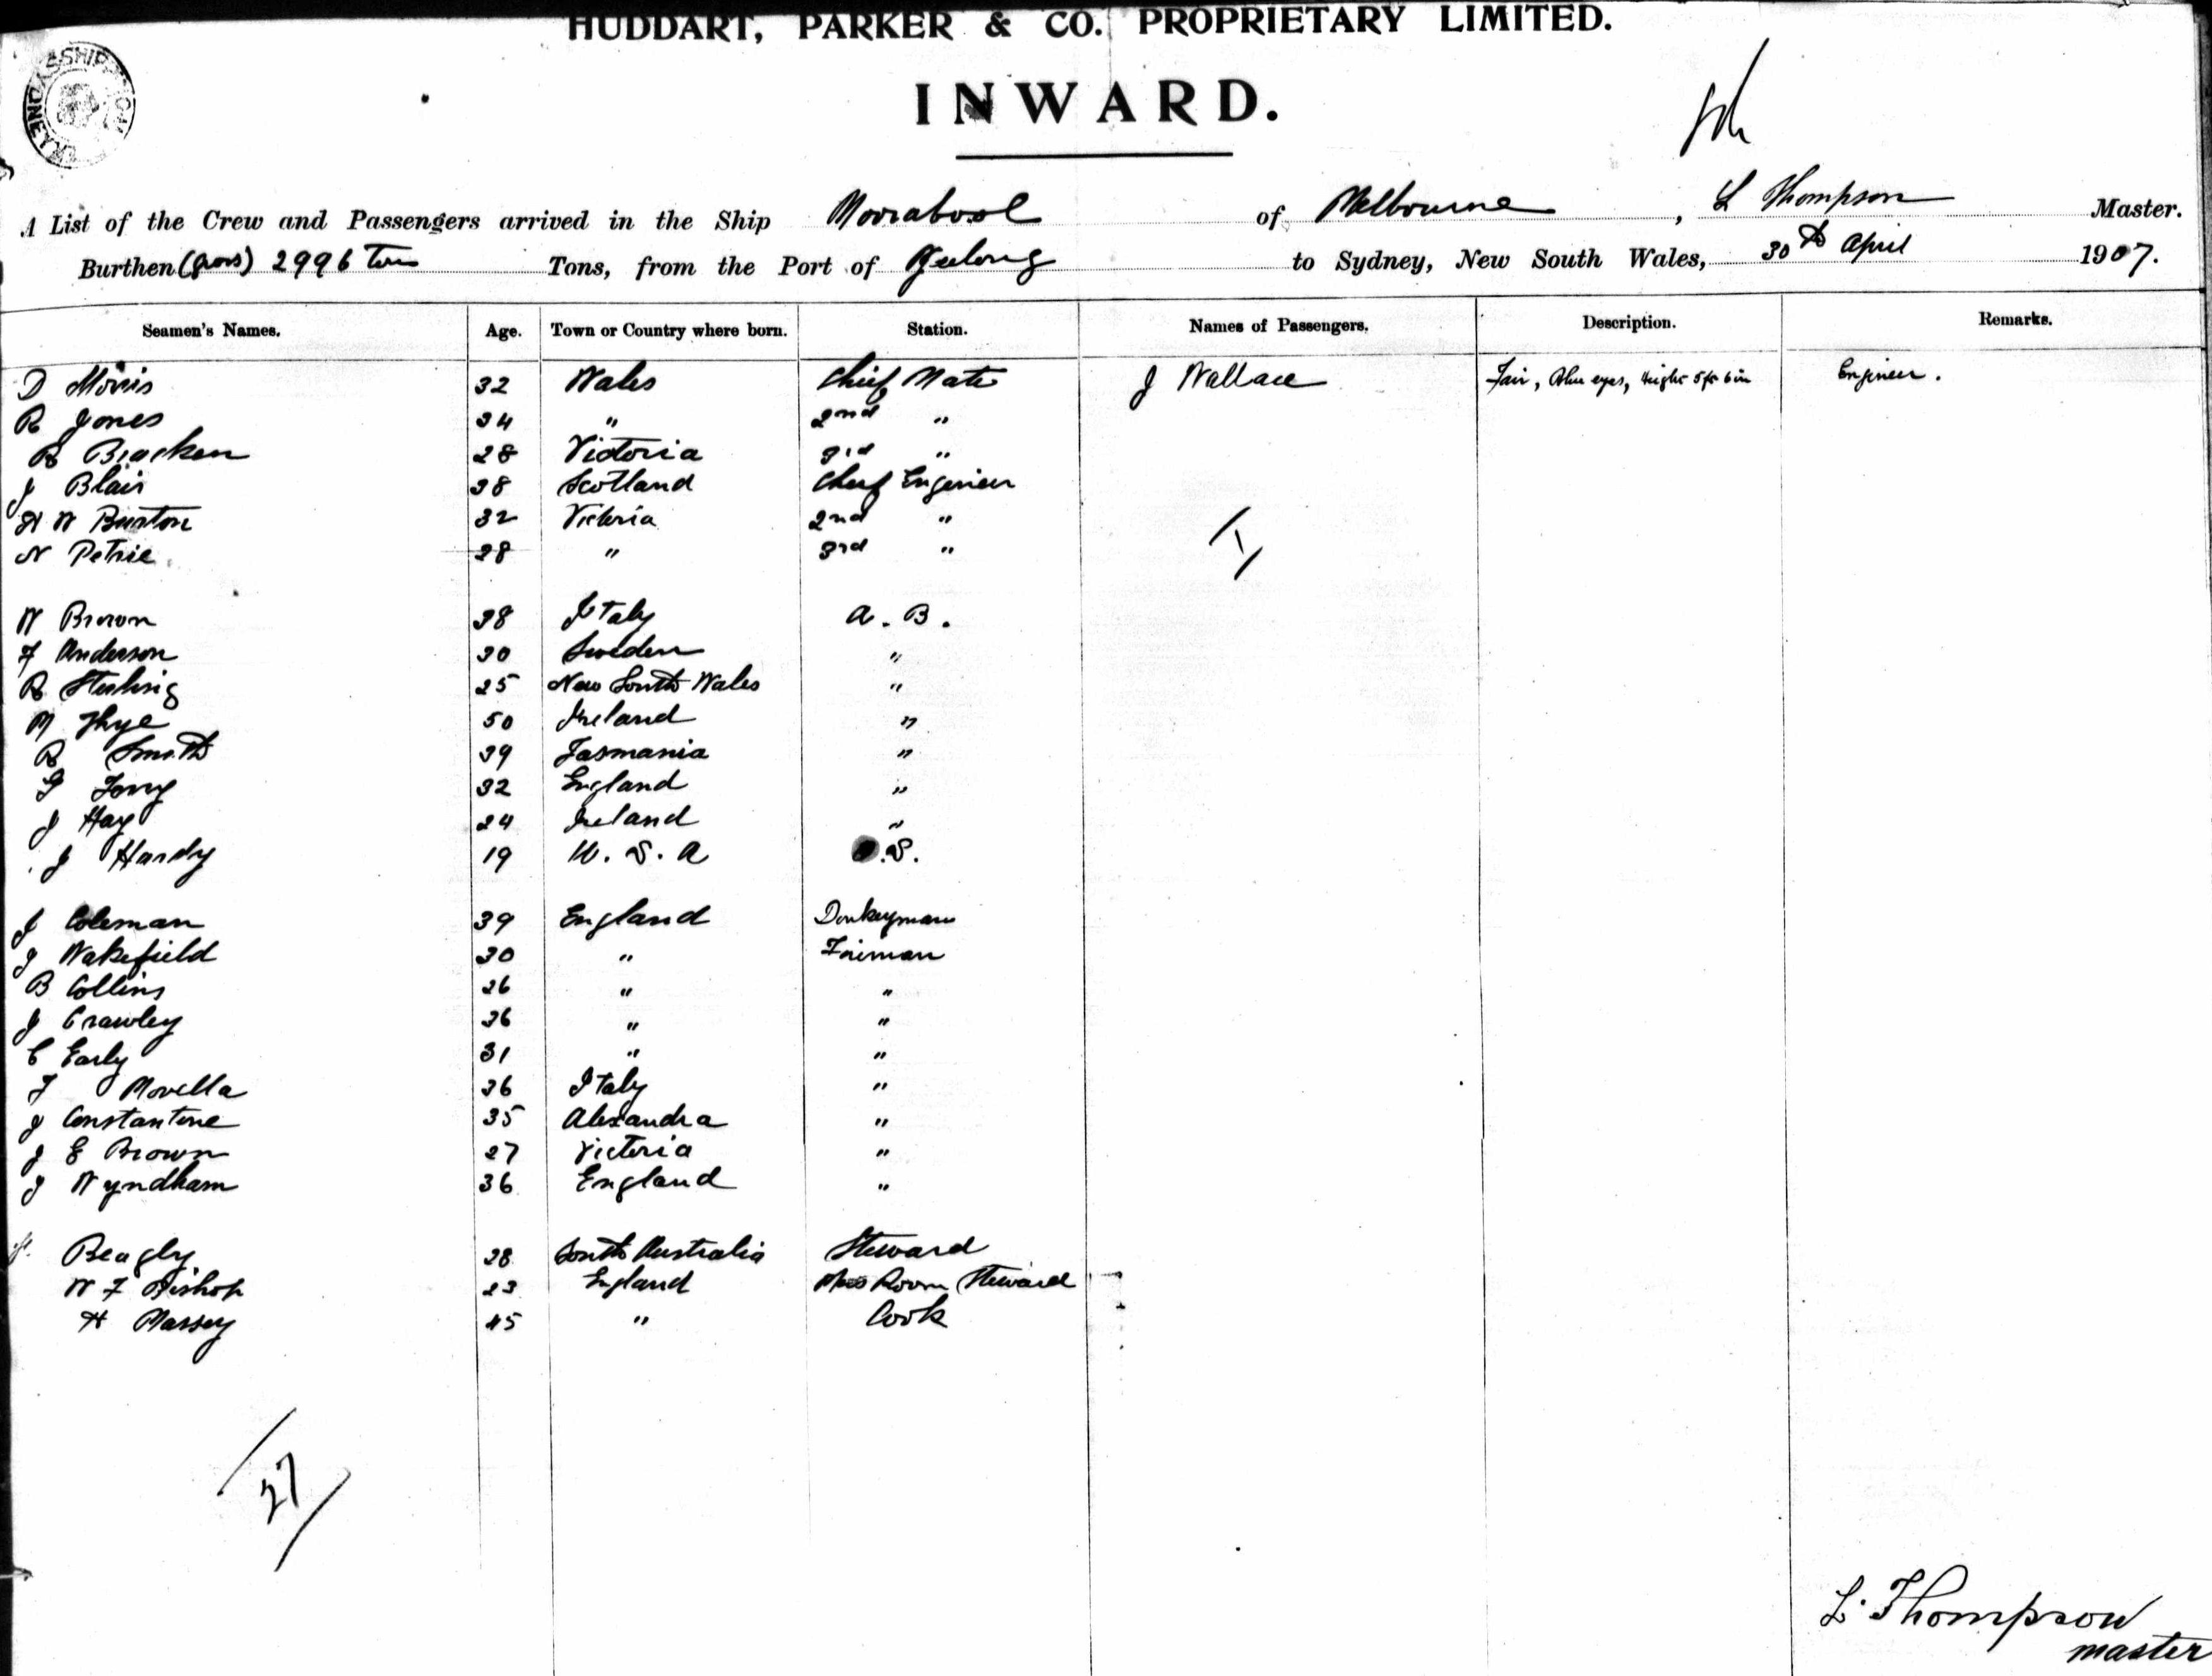 HUDDART, PARKER & CO. PROPRIETARY LIMITED.
INWARD.
A List of the Crew and Passengers arrived in the Ship Moorabool of Melbourne, L Thompson Master.
Burthen (gross) 2996 Tons Tons, from the Port of Geelong to Sydney, New South Wales, 30th April 1907.
Seamen's Names. Age. Town or Country where born. Station. Names of Passengers. Description. Remarks.
D Morris 32 Wales Chief Mate J Wallace Fair, Blue eyes, Height 5ft 6in Engineer.
R Jones 34 " 2nd "
R Bracken 28 Victoria 3rd "
J Blair 38 Scotland Chief Engineer
H W Burton 32 Victoria 2nd "
N Petrie 28 " 3rd "
1
W Brown 38 Italy A.B.
F Anderson 30 Sweden "
R Sterling 25 New South Wales "
M 50 Ireland "
R Smith 39 Tasmania "
G 32 England "
J Hay 24 Ireland "
J Hardy 19 U.S.A O.S.
J Coleman 39 England Donkeyman
J Wakefield 30 " Fireman
B Collins 26 " "
J Crawley 36 " "
C Early 31 " "
F Novella 36 Italy "
J Constantine 35 Alexandra "
J E Brown 27 Victoria "
J Wyndham 36 England "
Beagly 28 South Australia Steward
W F Bishop 23 England Mess Room Steward
H Massey 45 " Cook
27
L. Thompson
master